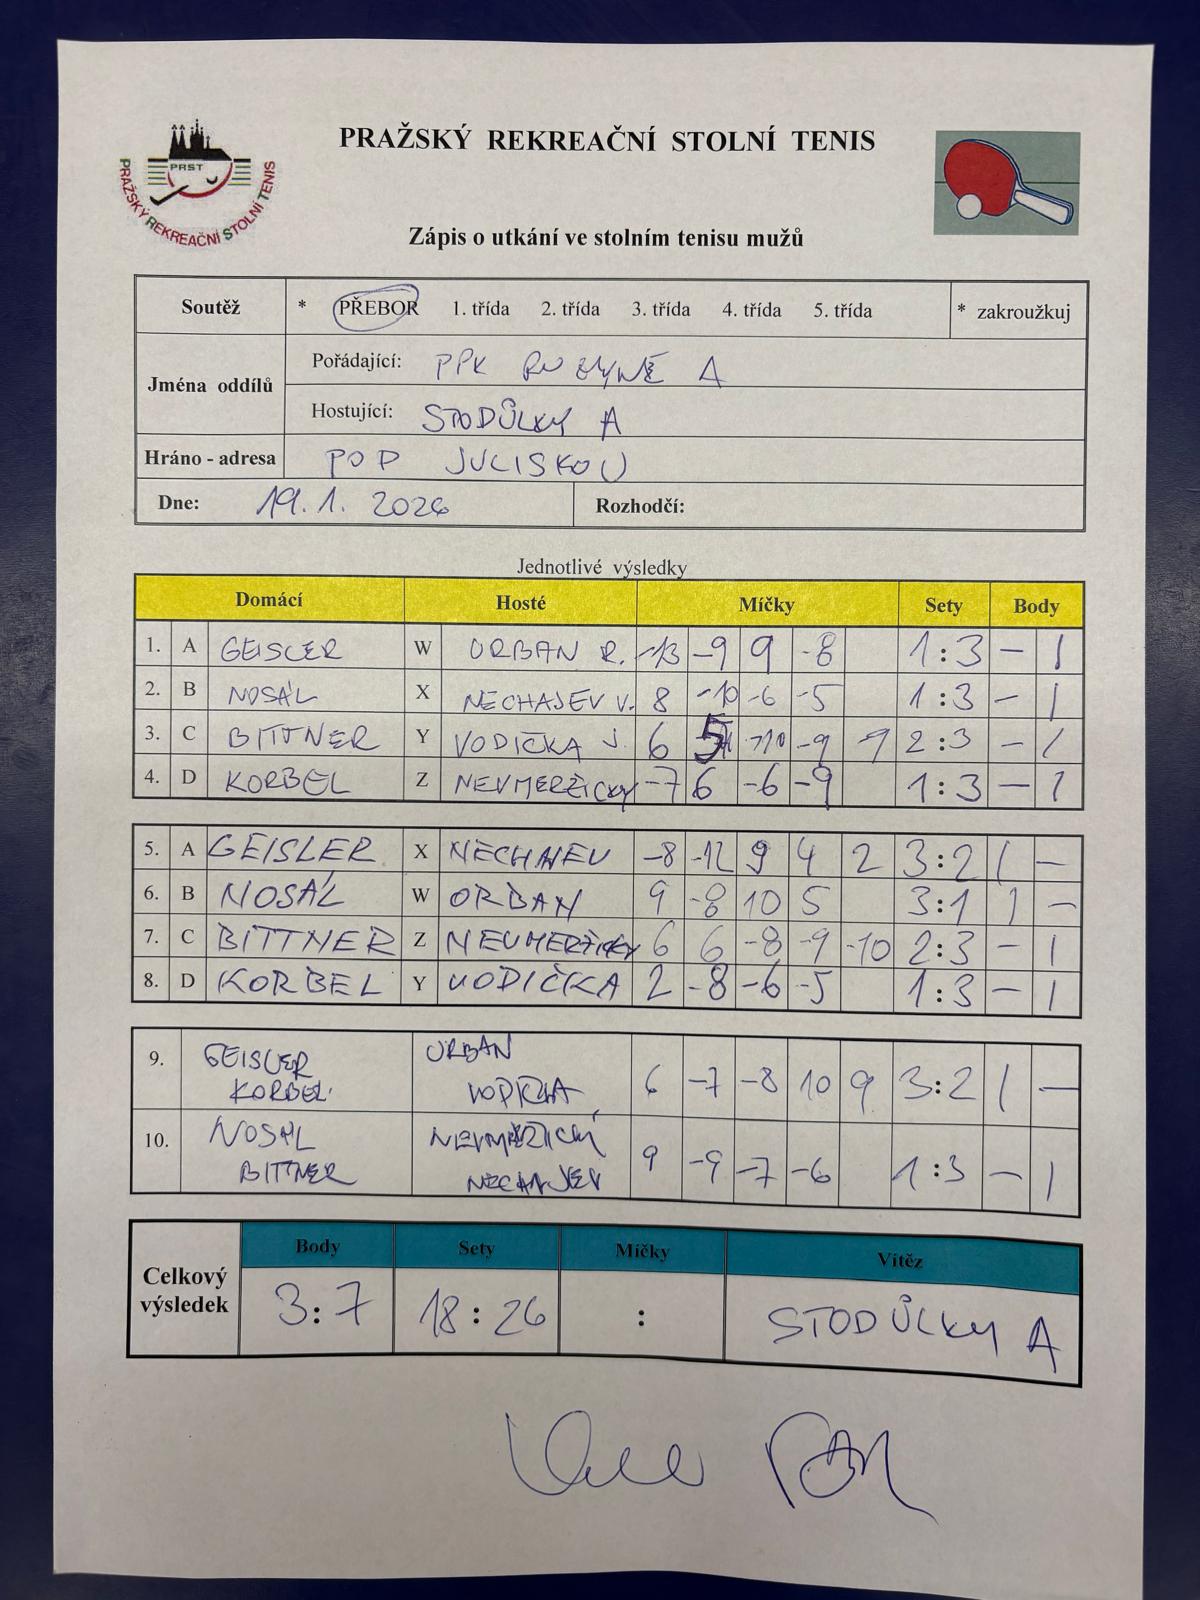 PRAŽSKÝ REKREAČNÍ STOLNÍ TENIS
PRST
PRAŽSKÝ REKREAČNÍ STOLNÍ TENIS
Zápis o utkání ve stolním tenisu mužů
Soutěž * PŘEBOR 1. třída 2. třída 3. třída 4. třída 5. třída * zakroužkuj
Jména oddílů
Pořádající: PPK RUZYNĚ A
Hostující: STODŮLKY A
Hráno - adresa POD JULISKOU
Dne: 19.1. 2026 Rozhodčí:
Jednotlivé výsledky
Domácí Hosté Míčky Sety Body
1. A GEISLER W URBAN R. -13 -9 9 -8 1:3 - 1
2. B NOSÁL X NECHAJEV V. 8 -10 -6 -5 1:3 - 1
3. C BITTNER Y VODIČKA J. 6 5 -10 -9 -9 2:3 - 1
4. D KORBEL Z NEUMERŽICKÝ -7 6 -6 -9 1:3 - 1
5. A GEISLER X NECHAJEV -8 -12 9 4 2 3:2 1 -
6. B NOSÁL W URBAN 9 -8 10 5 3:1 1 -
7. C BITTNER Z NEUMERŽICKÝ 6 6 -8 -9 -10 2:3 - 1
8. D KORBEL Y VODIČKA 2 -8 -6 -5 1:3 - 1
9. GEISLER URBAN
KORBEL VODIČKA 6 -7 -8 10 9 3:2 1 -
10. NOSÁL NEUMERŽICKÝ
BITTNER NECHAJEV 9 -9 -7 -6 1:3 - 1
Body Sety Míčky Vítěz
Celkový výsledek 3:7 18:26 : STODŮLKY A